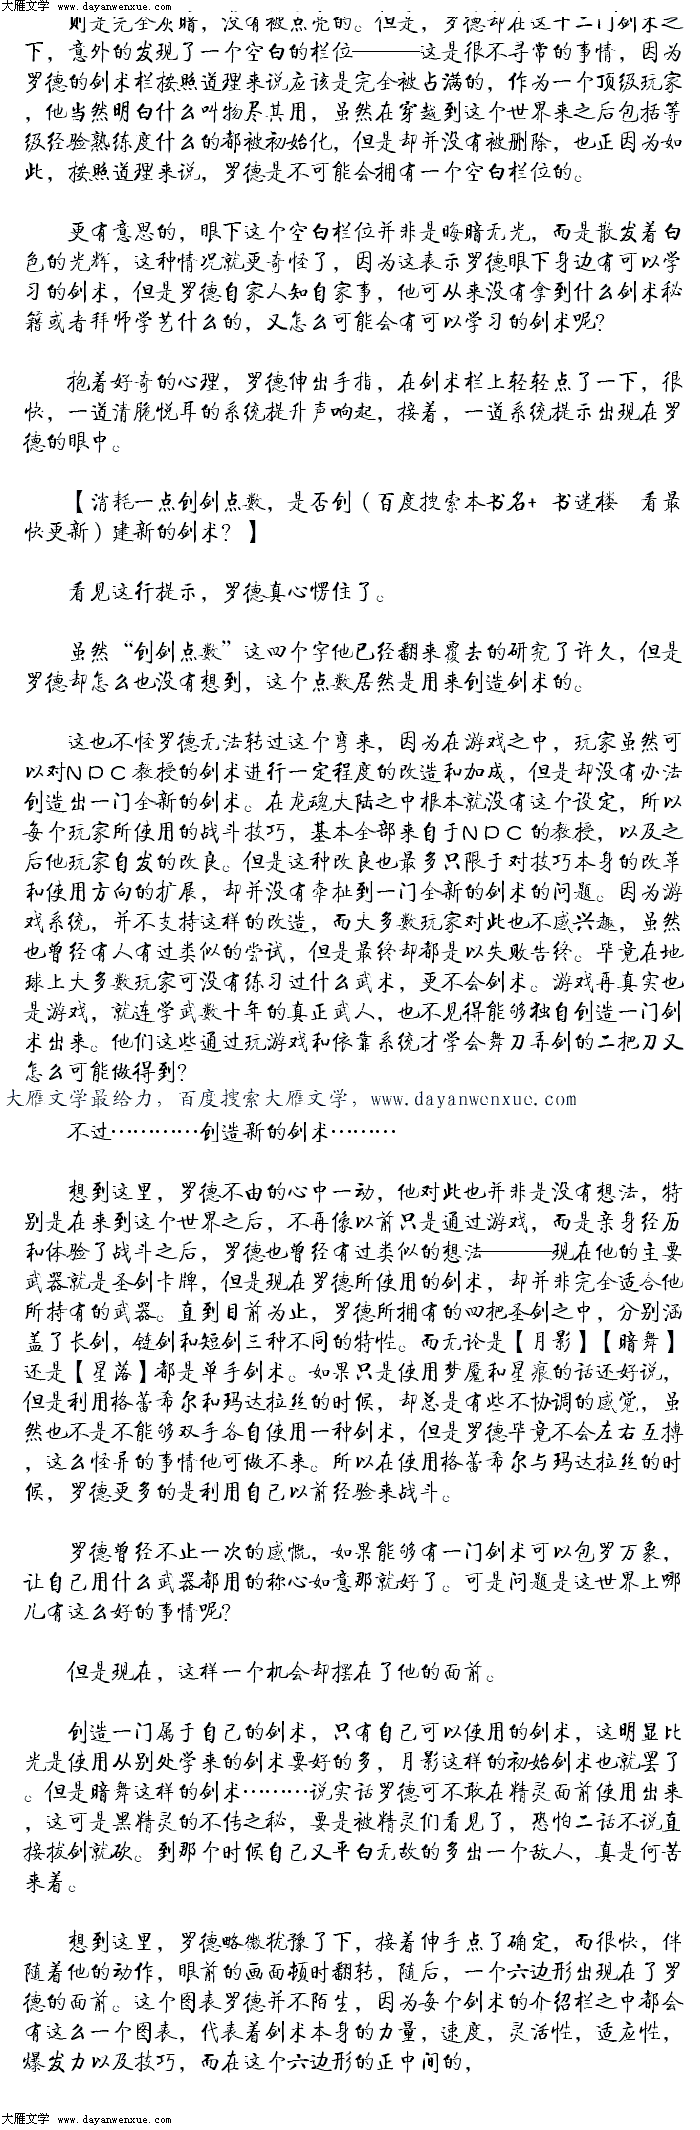 大雁文学 www.dayanwenxue.com
则是完全灰暗，没有被点亮的。但是，罗德却在这十二门剑术之
下，意外的发现了一个空白的栏位————这是很不寻常的事情，因为
罗德的剑术栏按照道理来说应该是完全被占满的，作为一个顶级玩家
，他当然明白什么叫物尽其用，虽然在穿越到这个世界来之后包括等
级经验熟练度什么的都被初始化，但是却并没有被删除，也正因为如
此，按照道理来说，罗德是不可能会拥有一个空白栏位的。
更有意思的，眼下这个空白栏位并非是晦暗无光，而是散发着白
色的光辉，这种情况就更奇怪了，因为这表示罗德眼下身边有可以学
习的剑术，但是罗德自家人知自家事，他可从来没有拿到什么剑术秘
籍或者拜师学艺什么的，又怎么可能会有可以学习的剑术呢？
抱着好奇的心理，罗德伸出手指，在剑术栏上轻轻点了一下，很
快，一道清脆悦耳的系统提升声响起，接着，一道系统提示出现在罗
德的眼中。
【消耗一点创剑点数，是否创（百度搜索本书名+ 书迷楼 看最
快更新）建新的剑术？】
看见这行提示，罗德真心愣住了。
虽然“创剑点数”这四个字他已经翻来覆去的研究了许久，但是
罗德却怎么也没有想到，这个点数居然是用来创造剑术的。
这也不怪罗德无法转过这个弯来，因为在游戏之中，玩家虽然可
以对ＮＤＣ教授的剑术进行一定程度的改造和加成，但是却没有办法
创造出一门全新的剑术。在龙魂大陆之中根本就没有这个设定，所以
每个玩家所使用的战斗技巧，基本全部来自于ＮＤＣ的教授，以及之
后他玩家自发的改良。但是这种改良也最多只限于对技巧本身的改革
和使用方向的扩展，却并没有牵扯到一门全新的剑术的问题。因为游
戏系统，并不支持这样的改造，而大多数玩家对此也不感兴趣，虽然
也曾经有人有过类似的尝试，但是最终却都是以失败告终。毕竟在地
球上大多数玩家可没有练习过什么武术，更不会剑术。游戏再真实也
是游戏，就连学武数十年的真正武人，也不见得能够独自创造一门剑
术出来。他们这些通过玩游戏和依靠系统才学会舞刀弄剑的二把刀又
怎么可能做得到？
大雁文学最给力，百度搜索大雁文学，www.dayanwenxue.com
不过…………创造新的剑术………
想到这里，罗德不由的心中一动，他对此也并非是没有想法，特
别是在来到这个世界之后，不再像以前只是通过游戏，而是亲身经历
和体验了战斗之后，罗德也曾经有过类似的想法————现在他的主要
武器就是圣剑卡牌，但是现在罗德所使用的剑术，却并非完全适合他
所持有的武器。直到目前为止，罗德所拥有的四把圣剑之中，分别涵
盖了长剑，链剑和短剑三种不同的特性。而无论是【月影】【暗舞】
还是【星落】都是单手剑术。如果只是使用梦魇和星痕的话还好说，
但是利用格蕾希尔和玛达拉丝的时候，却总是有些不协调的感觉，虽
然也不是不能够双手各自使用一种剑术，但是罗德毕竟不会左右互搏
，这么怪异的事情他可做不来。所以在使用格蕾希尔与玛达拉丝的时
候，罗德更多的是利用自己以前经验来战斗。
罗德曾经不止一次的感慨，如果能够有一门剑术可以包罗万象，
让自己用什么武器都用的称心如意那就好了。可是问题是这世界上哪
儿有这么好的事情呢？
但是现在，这样一个机会却摆在了他的面前。
创造一门属于自己的剑术，只有自己可以使用的剑术，这明显比
光是使用从别处学来的剑术要好的多，月影这样的初始剑术也就罢了
。但是暗舞这样的剑术………说实话罗德可不敢在精灵面前使用出来
，这可是黑精灵的不传之秘，要是被精灵们看见了，恐怕二话不说直
接拔剑就砍。到那个时候自己又平白无故的多出一个敌人，真是何苦
来着。
想到这里，罗德略微犹豫了下，接着伸手点了确定，而很快，伴
随着他的动作，眼前的画面顿时翻转，随后，一个六边形出现在了罗
德的面前。这个图表罗德并不陌生，因为每个剑术的介绍栏之中都会
有这么一个图表，代表着剑术本身的力量，速度，灵活性，适应性，
爆发力以及技巧，而在这个六边形的正中间的，
大雁文学 www.dayanwenxue.com